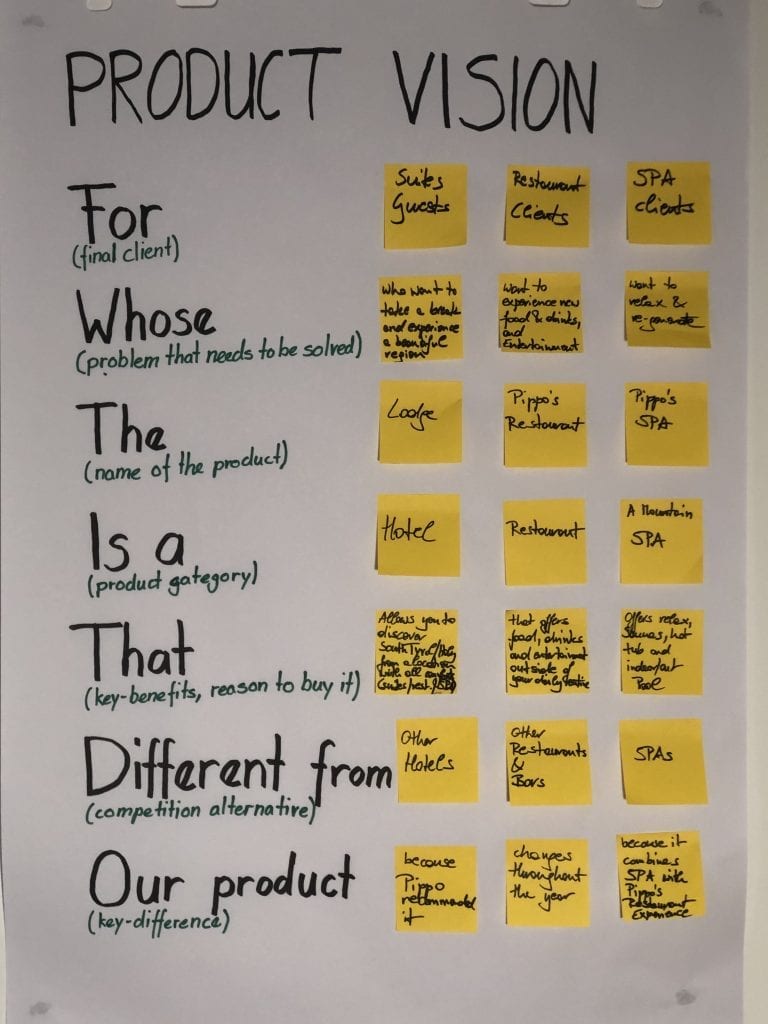 PRODUCT VISION
For
(final client)
Suites
Guests
Restaurant
Clients
SPA
clients
Whose
(problem that needs to be solved)
Who want to
take a break
and experience
a beautiful
region
Want to
experience new
food & drinks,
and
Entertainment
Want to
relax &
re-generate
The
(name of the product)
Lodge
Pippo's
Restaurant
Pippo's
SPA
Is a
(product gategory)
Hotel
Restaurant
A Mountain
SPA
That
(key-benefits, reason to buy it)
Allows you to
discover
South Tyrol/Italy
from a location
with all
that offers
food, drinks
and entertainment
outside of
your daily routine
Offers relax,
saunas, hot
tub and
indoor/out
Pool
Different from
(competition alternative)
Other
Hotels
Other
Restaurants
&
Bars
SPAs
Our product
(key-difference)
because
Pippo
recommended
it
changes
throughout
the year
because it
combines
SPA with
Pippo's
Restaurant
Experience